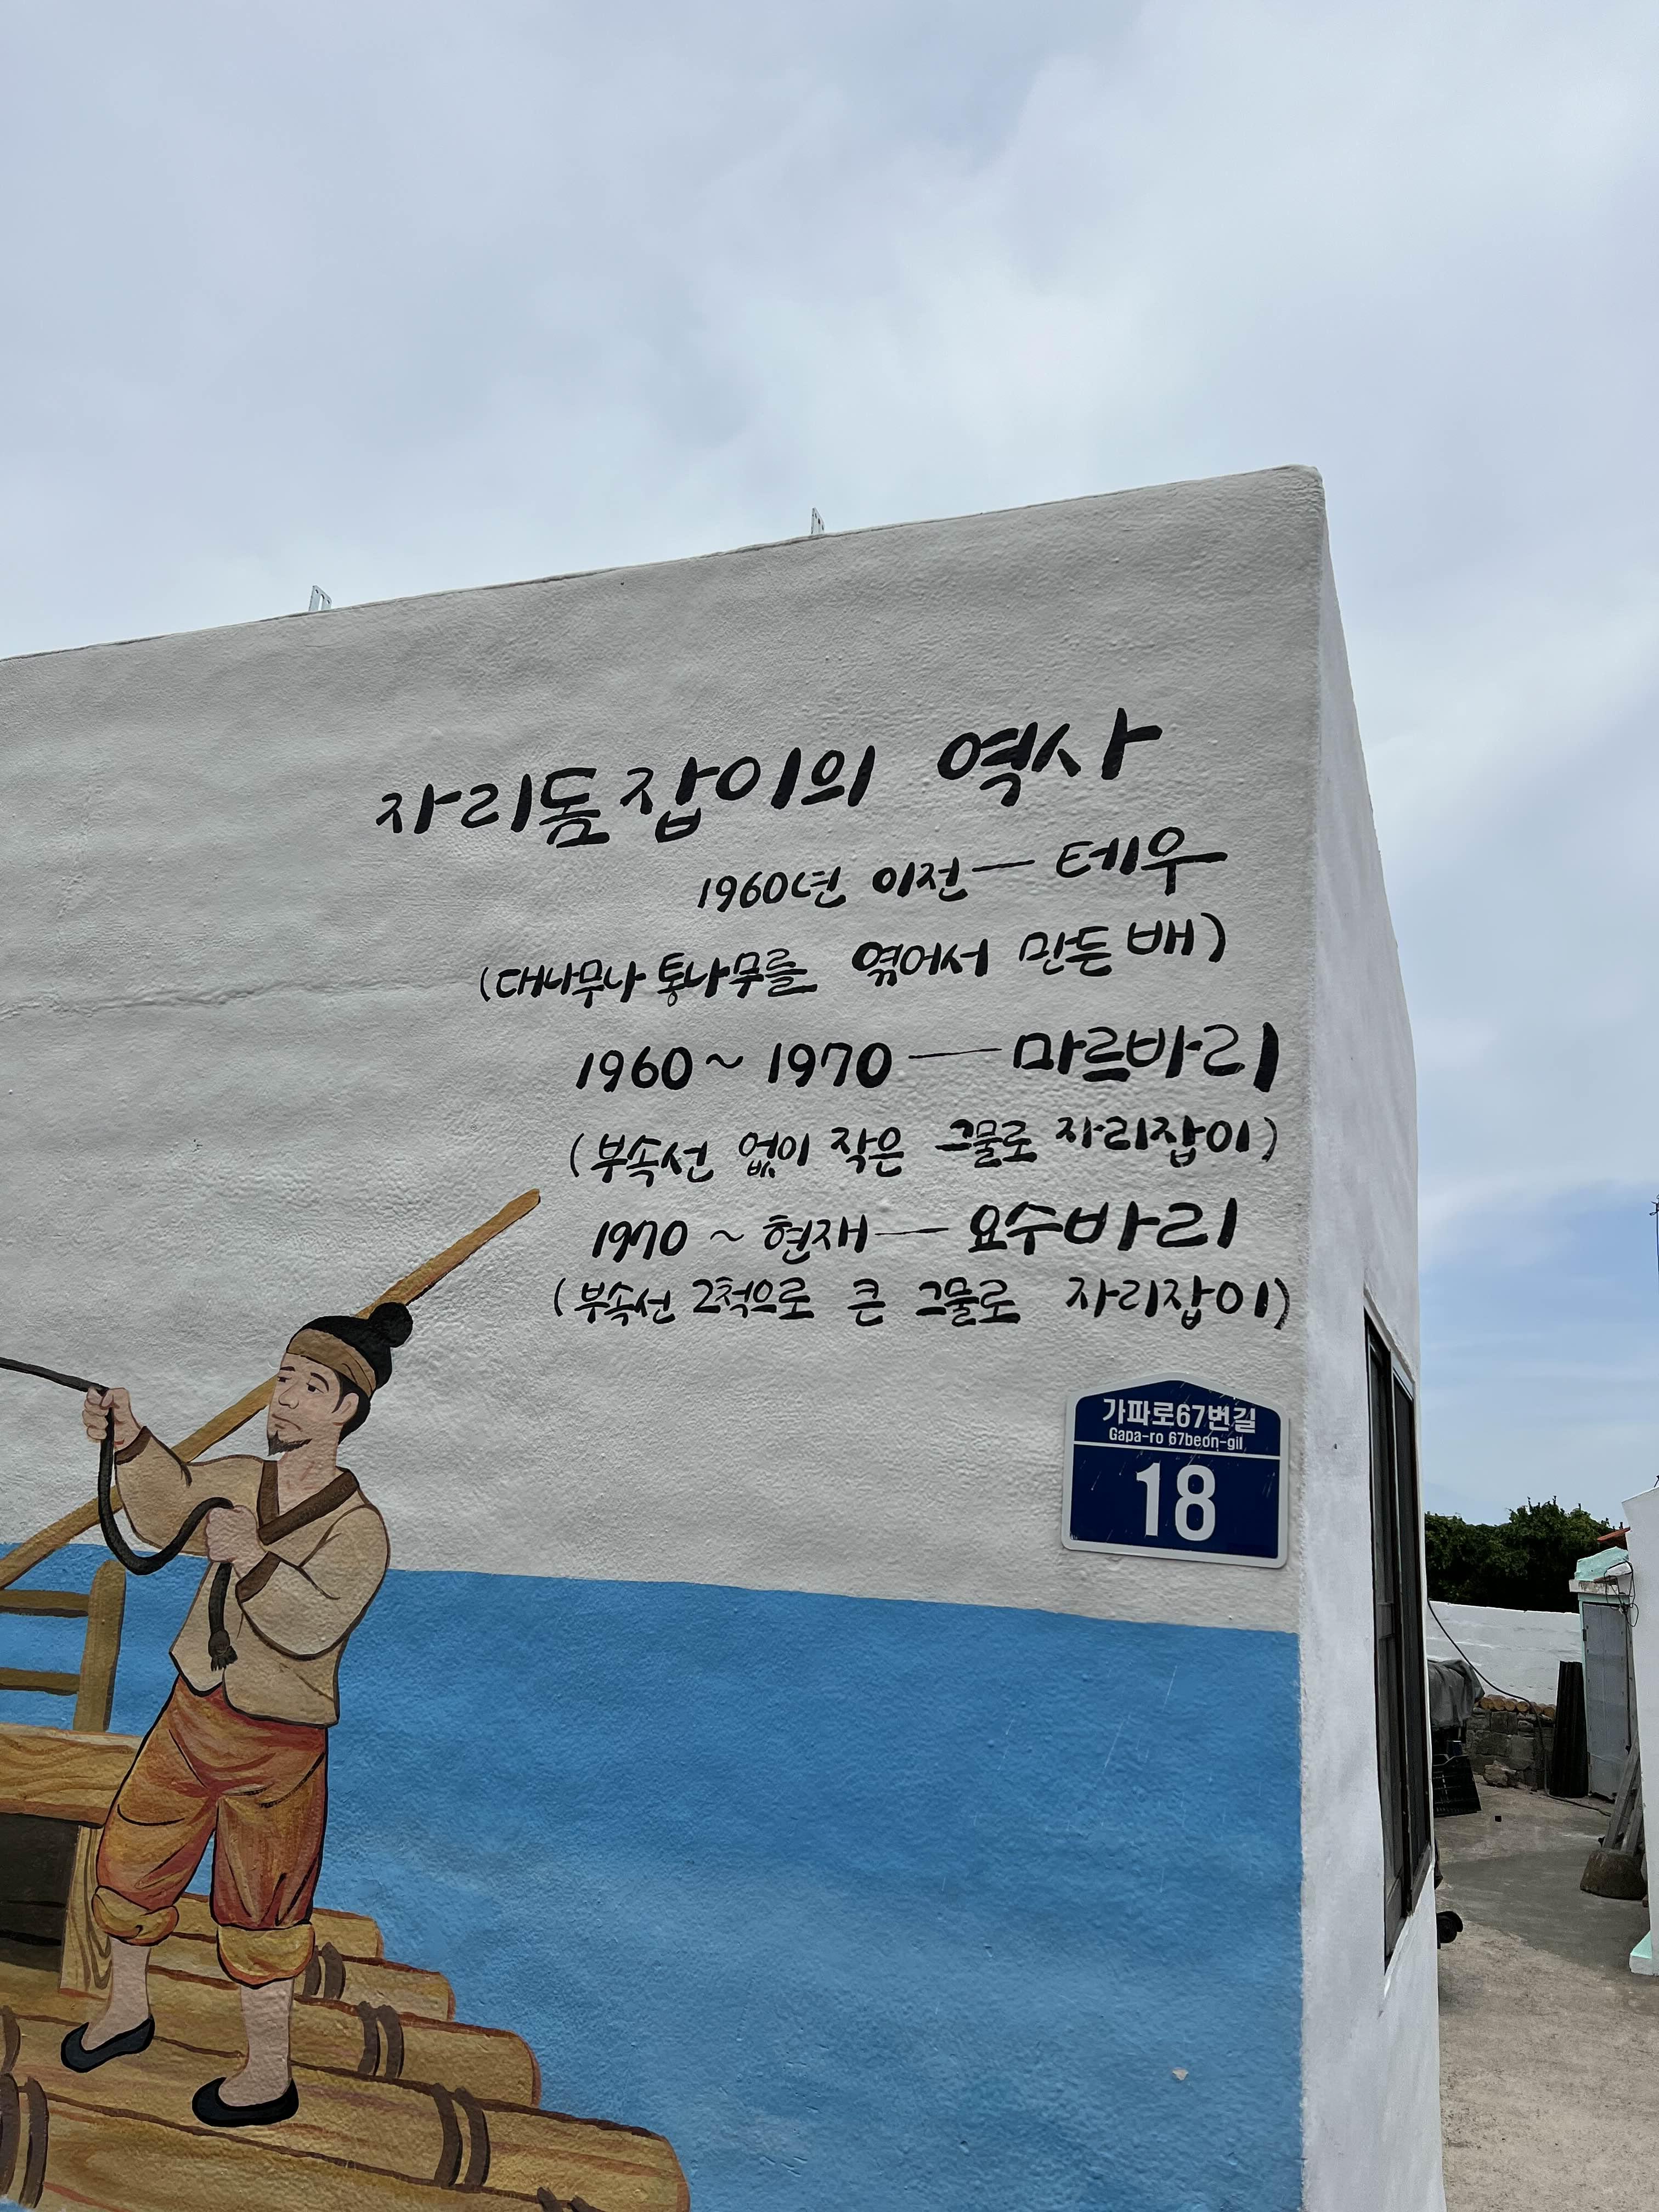 자리돔잡이의 역사
1960년 이전 — 테우
(대나무나 통나무를 엮어서 만든 배)
1960 ~ 1970 — 마르바리
(부속선 없이 작은 그물로 자리잡이)
1970 ~ 현재 — 요수바리
(부속선 2척으로 큰 그물로 자리잡이)
가파로67번길
Gapa-ro 67beon-gil
18